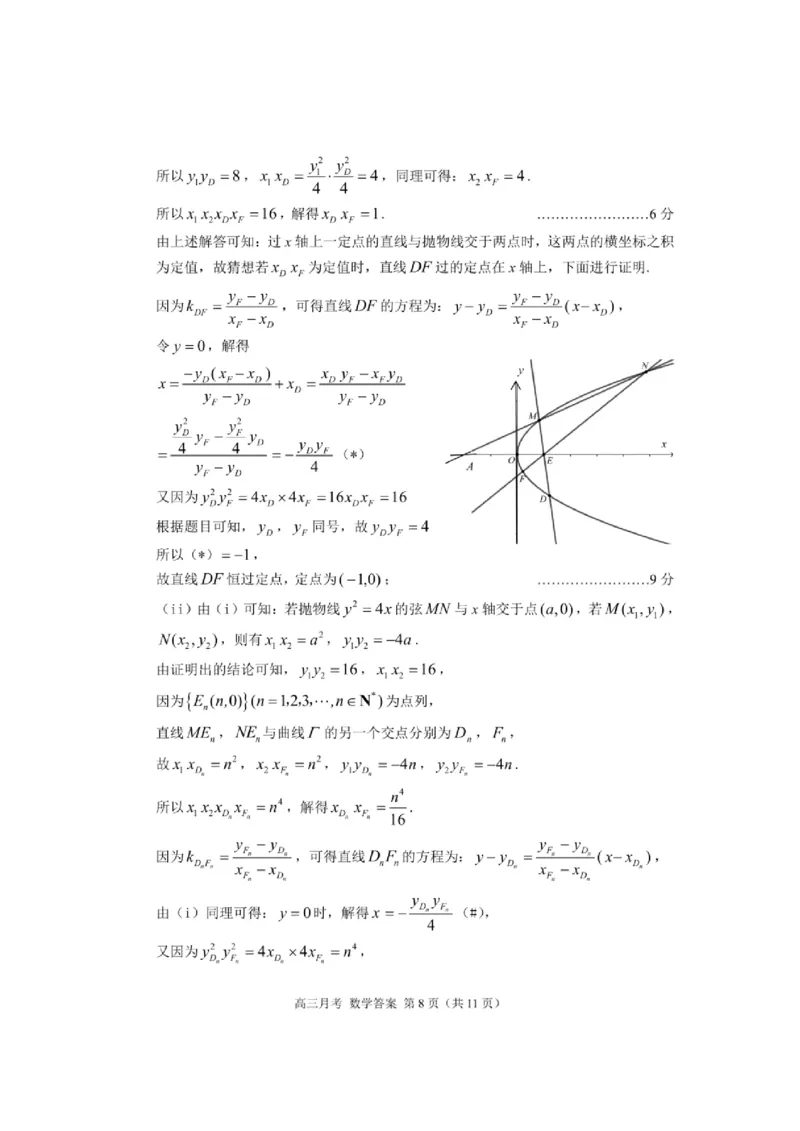 所以 y₁y_D = 8，x₁x_D = y₁²/4 · y_D²/4 = 4，同理可得：x₂x_F = 4．
所以 x₁x₂x_Dx_F = 16，解得 x_Dx_F = 1．……………………6 分
由上述解答可知：过 x 轴上一定点的直线与抛物线交于两点时，这两点的横坐标之积
为定值，故猜想若 x_D x_F 为定值时，直线 DF 过的定点在 x 轴上，下面进行证明．
因为 k_DF = (y_F − y_D)/(x_F − x_D)，可得直线 DF 的方程为：y − y_D = (y_F − y_D)/(x_F − x_D) (x − x_D)，
令 y = 0，解得
x = −y_D(x_F − x_D)/(y_F − y_D) + x_D = (x_Dy_F − x_Fy_D)/(y_F − y_D)
= (y_D²/4 y_F − y_F²/4 y_D)/(y_F − y_D) = − y_Dy_F/4 （*）
又因为 y_D²y_F² = 4x_D × 4x_F = 16x_Dx_F = 16
根据题目可知，y_D，y_F 同号，故 y_Dy_F = 4
所以（*）= −1，
故直线 DF 恒过定点，定点为 (−1,0)；……………………9 分
y
N
M
x
A
O
E
F
D
（ii）由（i）可知：若抛物线 y² = 4x 的弦 MN 与 x 轴交于点 (a,0)，若 M(x₁,y₁)，
N(x₂,y₂)，则有 x₁x₂ = a²，y₁y₂ = −4a．
由证明出的结论可知，y₁y₂ = 16，x₁x₂ = 16，
因为 {E_n(n,0)}(n = 1,2,3,⋯,n ∈ N*) 为点列，
直线 ME_n，NE_n 与曲线 Γ 的另一个交点分别为 D_n，F_n，
故 x₁x_{D_n} = n²，x₂x_{F_n} = n²，y₁y_{D_n} = −4n，y₂y_{F_n} = −4n．
所以 x₁x₂x_{D_n}x_{F_n} = n⁴，解得 x_{D_n}x_{F_n} = n⁴/16．
因为 k_{D_nF_n} = (y_{F_n} − y_{D_n})/(x_{F_n} − x_{D_n})，可得直线 D_nF_n 的方程为：y − y_{D_n} = (y_{F_n} − y_{D_n})/(x_{F_n} − x_{D_n}) (x − x_{D_n})，
由（i）同理可得：y = 0 时，解得 x = − y_{D_n}y_{F_n}/4 （#），
又因为 y_{D_n}²y_{F_n}² = 4x_{D_n} × 4x_{F_n} = n⁴，
高三月考 数学答案 第 8 页（共 11 页）